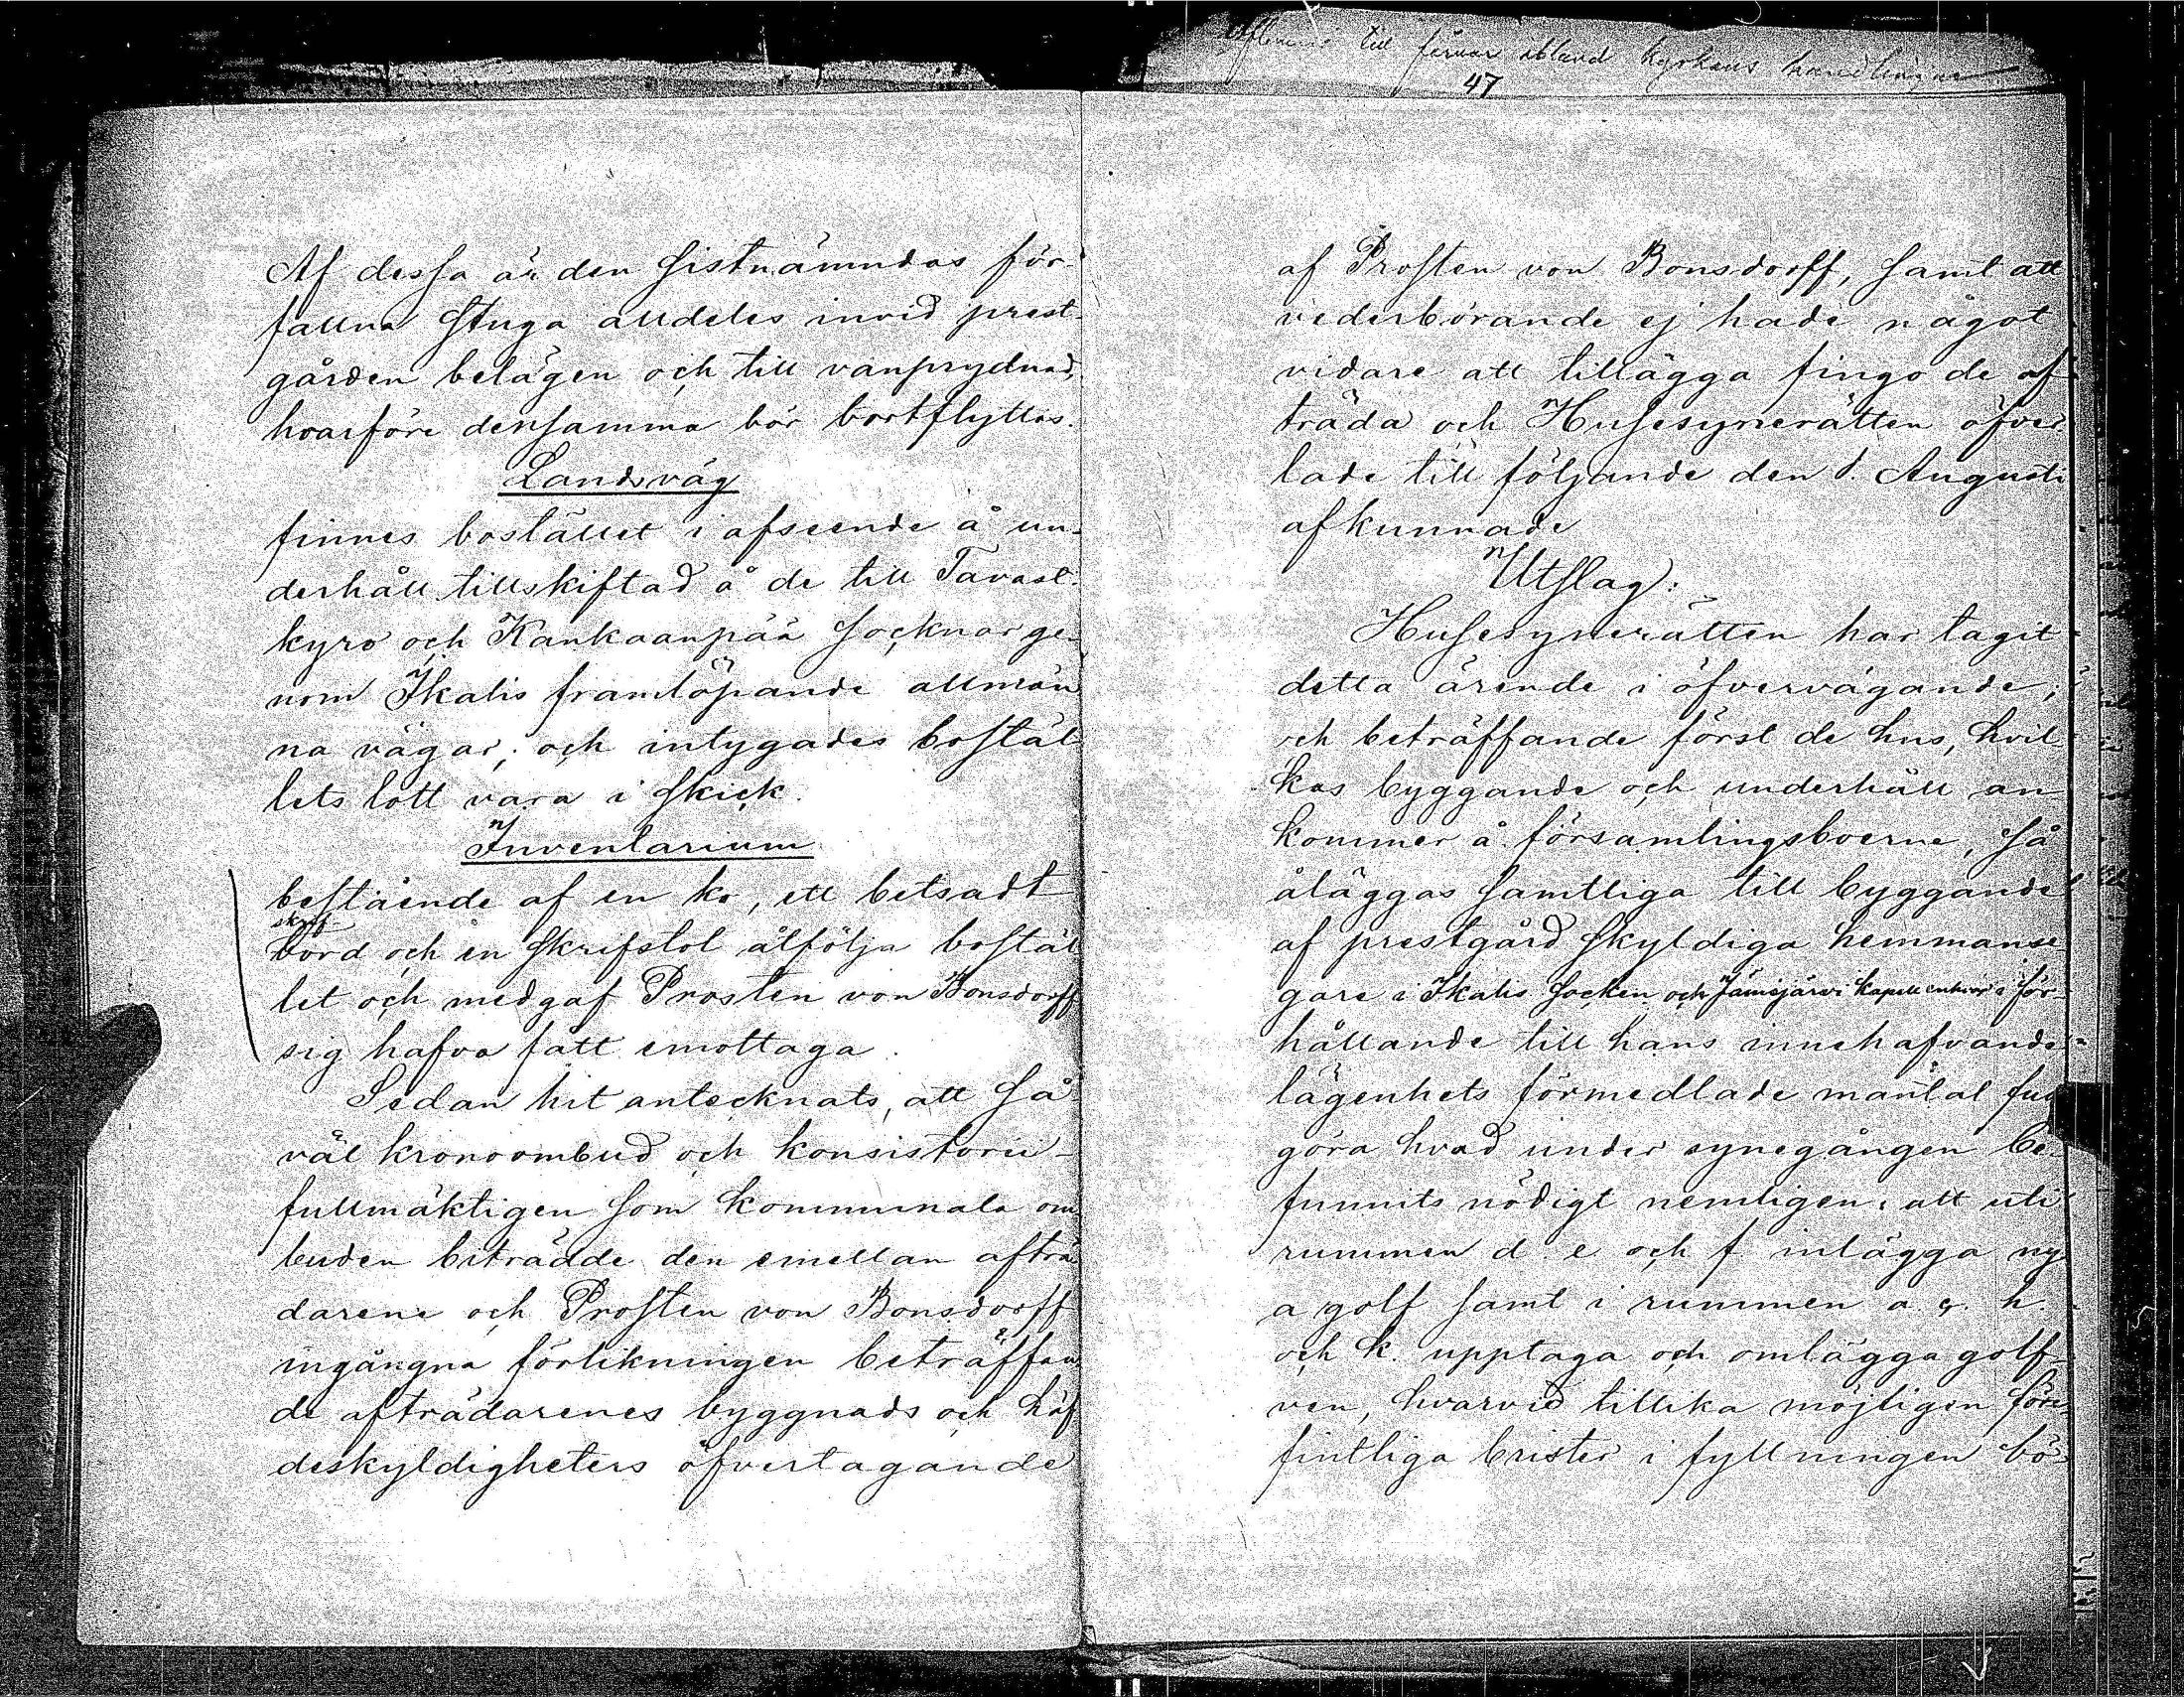 till förvar ibland kyrkans handlingar
47
Af dessa är den sistnämndas för-
fallna stuga alldeles invid prest-
gården belägen och till vanprydnad,
hvarföre densamma bör bortflyttas.
Landsväg
finnes bostället i afseende å un-
derhåll tillskiftad å de till Tavast-
kyro och Kankaanpää socknar ge-
nom Ikalis framlöpande allmän
na vägar; och intygades bostäl
lets lott vara i skick.
Inventarium
bestående af en ko, ett betsadt
skrif
bord och en skrifstol åtfölja bostäl
let och medgaf Prosten von Bonsdorff
sig hafva fått emottaga.
Sedan hit antecknats, att så
väl kronoombud och konsistorii-
fullmäktigen som kommunala om
buden biträdde den emellan afträ
darene och Prosten von Bonsdorff
ingångna förlikningen beträffan
de afträdarenes byggnads och häf
deskyldigheters öfvertagande
af Prosten von Bonsdorff, samt att
vederbörande ej hade något
vidare att tillägga fingo de af
träda och Husesynerätten öfver-
lade till följande den 1. Augusti
afkunnade
Utslag:
Husesynerätten har tagit
detta ärende i öfvervägande;
och beträffande först de hus, hvil
kas byggande och underhåll an
kommer å församlingsboerne, så
åläggas samtliga till byggande
af prestgård skyldiga hemmanse
gare i Ikalis socken och Jämijärvi kapell enhvar i för-
hållande till hans innehafvande
lägenhets förmedlade mantal full
göra hvad under synegången be-
funnits nödigt nemligen: att uti
rummen d. e och f inlägga ny
a golf samt i rummen a. g. h.
och k. upptaga och omlägga golf-
ven, hvarvid tillika möjligen före-
fintliga brister i fyllningen bö-